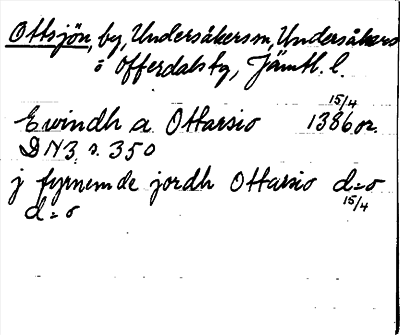 Ottsjön, by, Undersåkerssn, Undersåkers
o Offerdals tg, Jämtl. l.
15/4
Ewindh a Ottarsio 1386 or.
DN3 s. 350
j fyrnemde jordh Ottarsio d=o
d=o 15/4